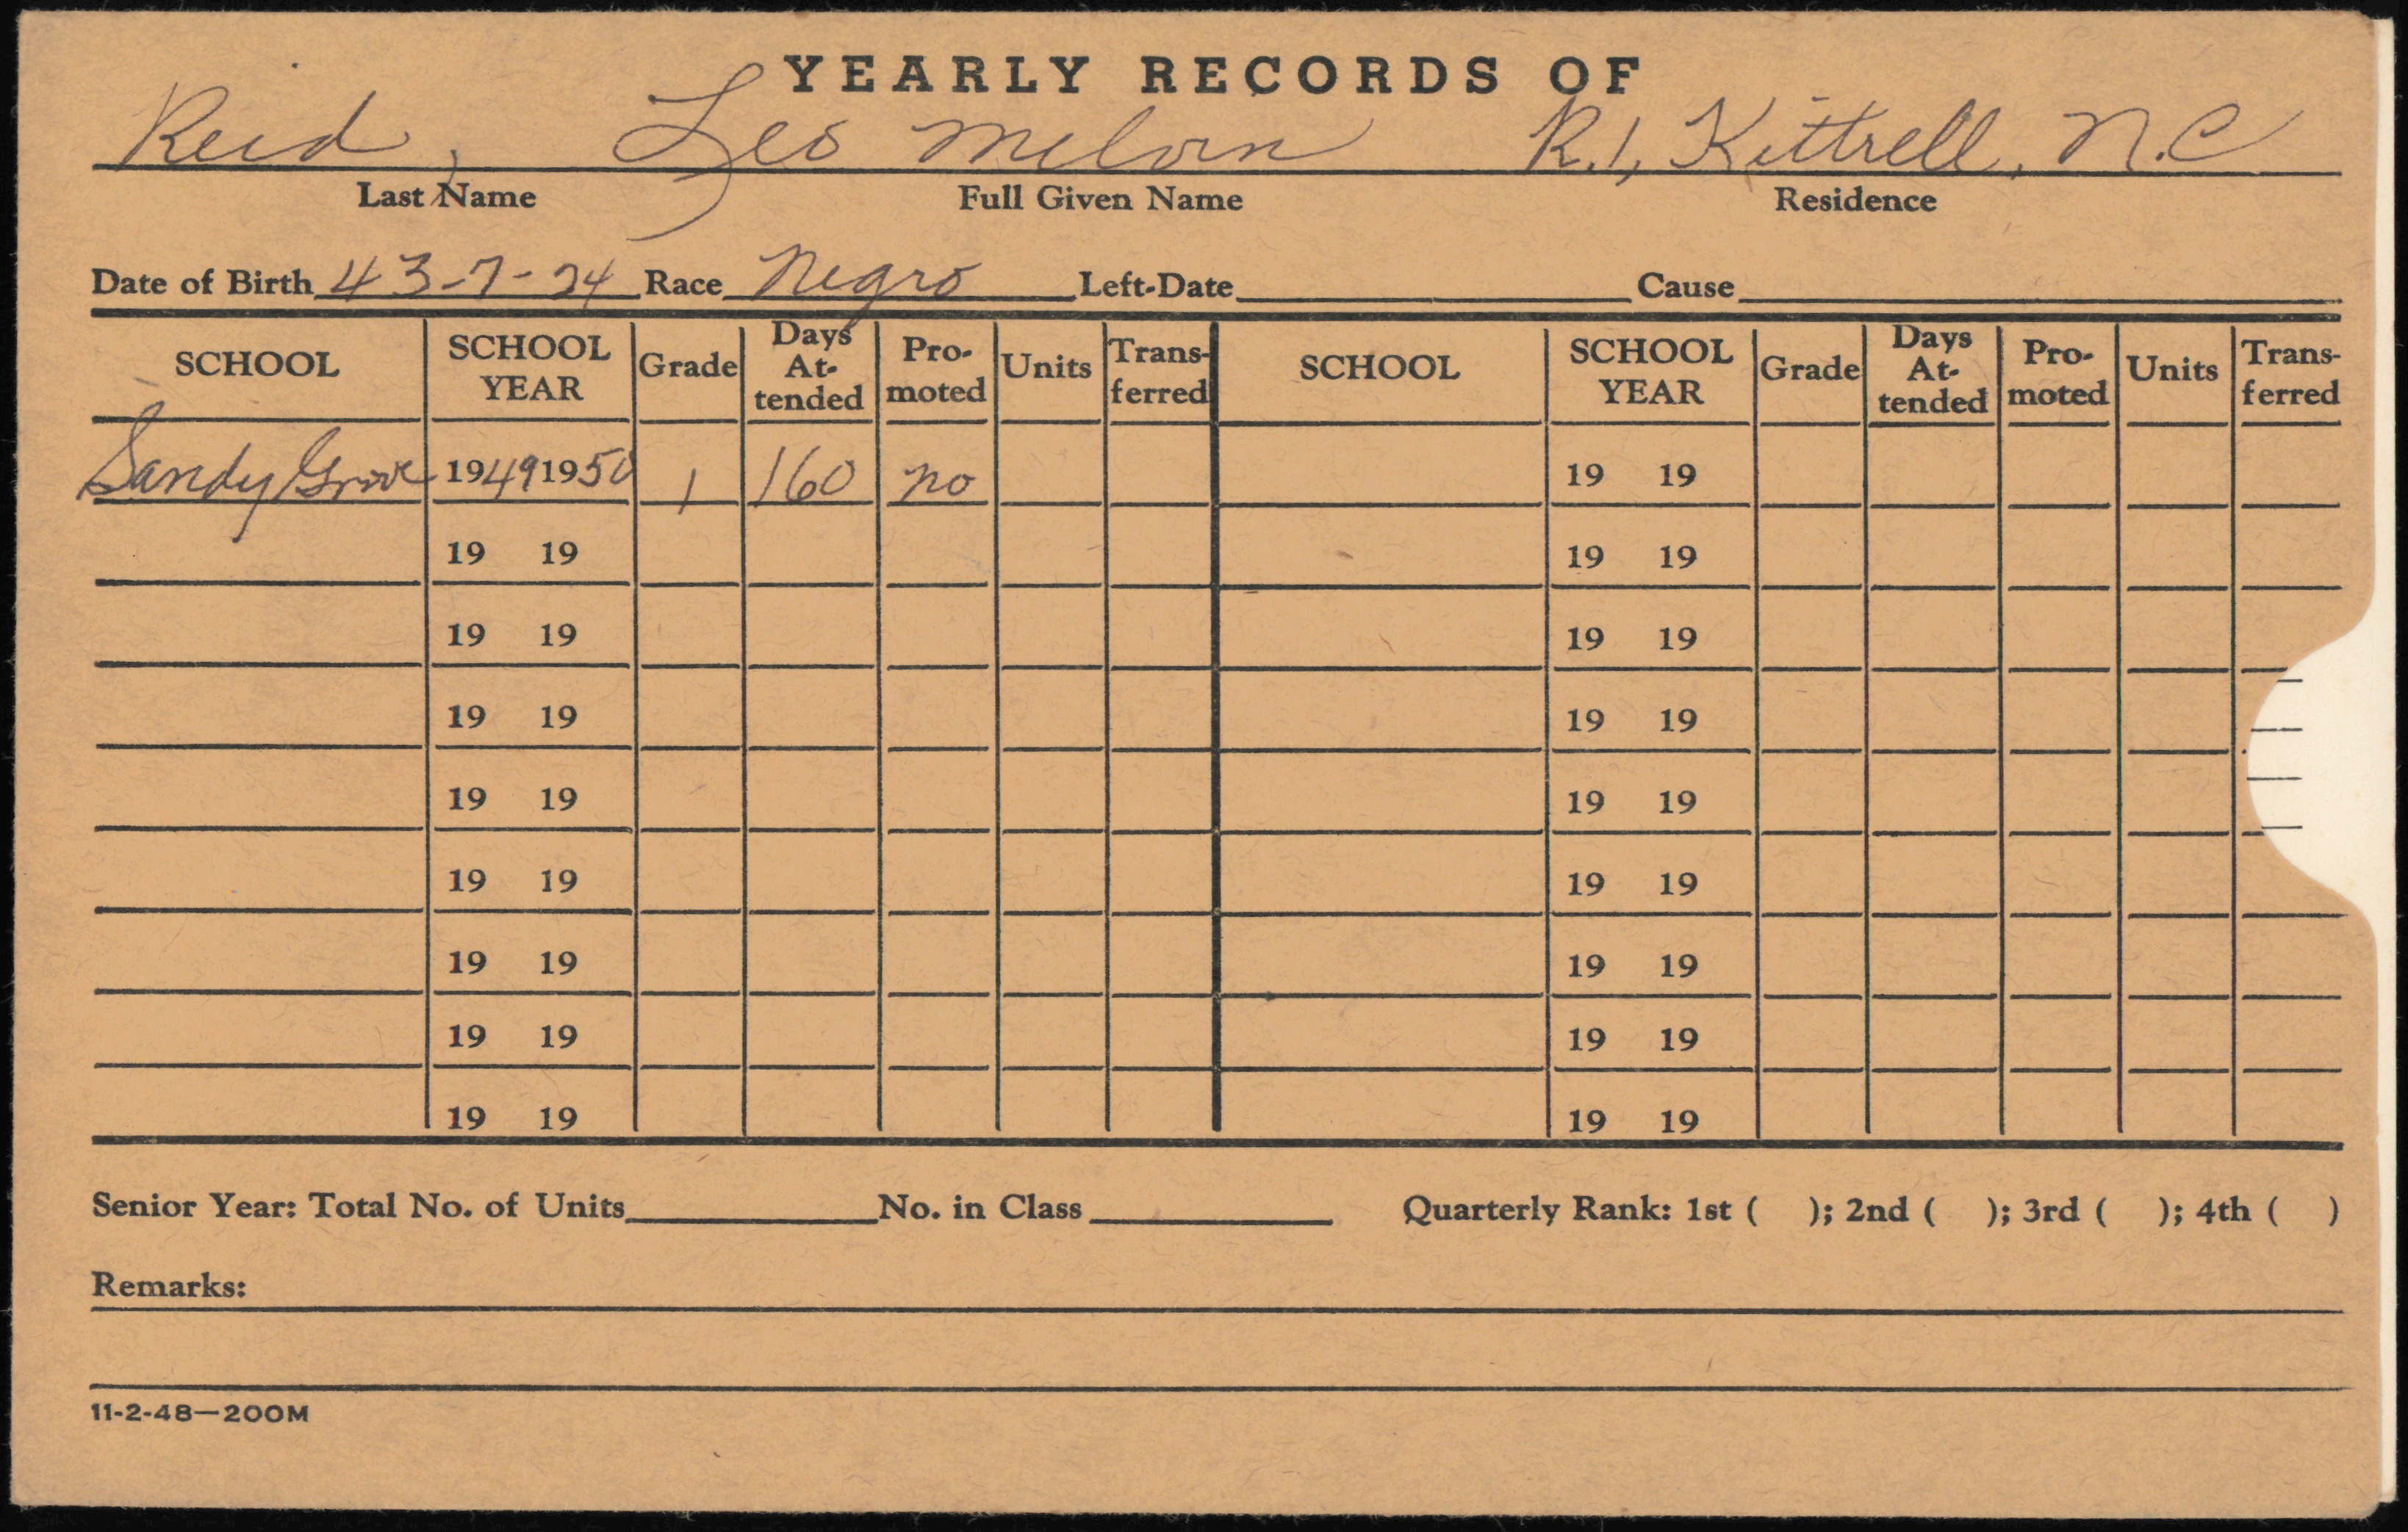 YEARLY RECORDS OF
Reid, Leo Melvin R.1, Kittrell, N.C
Last Name Full Given Name Residence
Date of Birth 43-7-24 Race Negro Left-Date Cause
SCHOOL SCHOOL YEAR Grade Days At-tended Pro-moted Units Trans-ferred SCHOOL SCHOOL YEAR Grade Days At-tended Pro-moted Units Trans-ferred
Sandy Grove 1949 1950 1 160 no 19 19
19 19 19 19
19 19 19 19
19 19 19 19
19 19 19 19
19 19 19 19
19 19 19 19
19 19 19 19
19 19 19 19
Senior Year: Total No. of Units No. in Class Quarterly Rank: 1st ( ); 2nd ( ); 3rd ( ); 4th ( )
Remarks:
11-2-48—200M